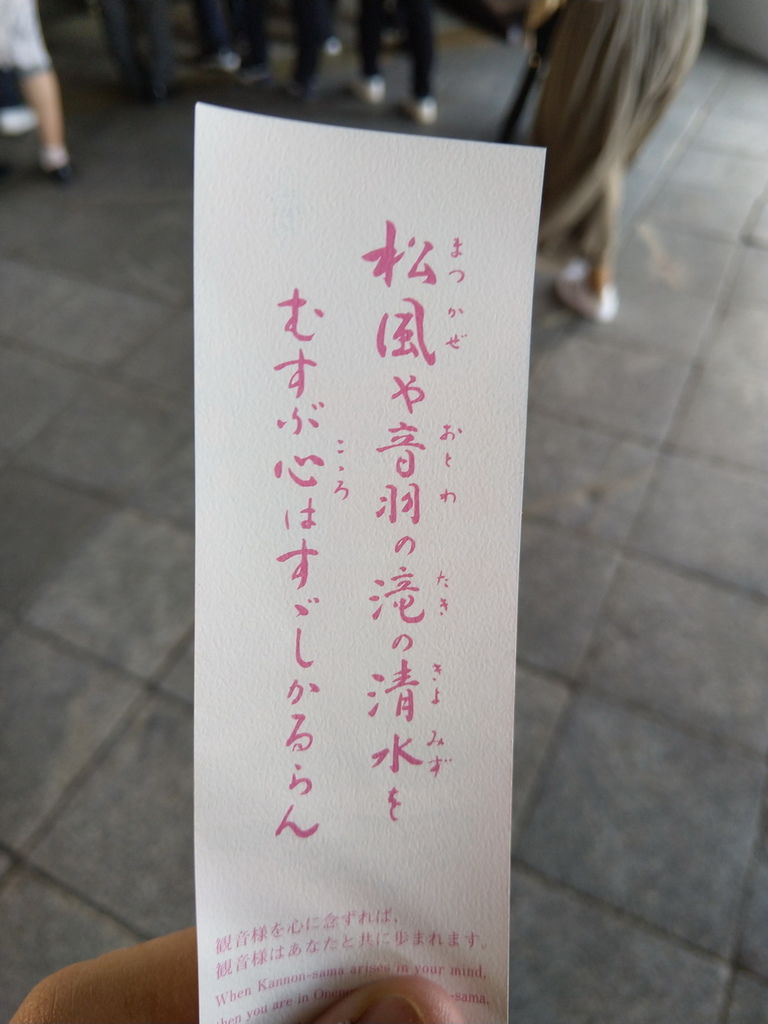 松風や音羽の滝の清水を
まつかぜ おとわ たき きよみず
むすぶ心はすゞしかるらん
こころ
観音様を心に念ずれば、
観音様はあなたと共に歩まれます。
When Kannon-sama arises in your mind,
then you are in -sama.